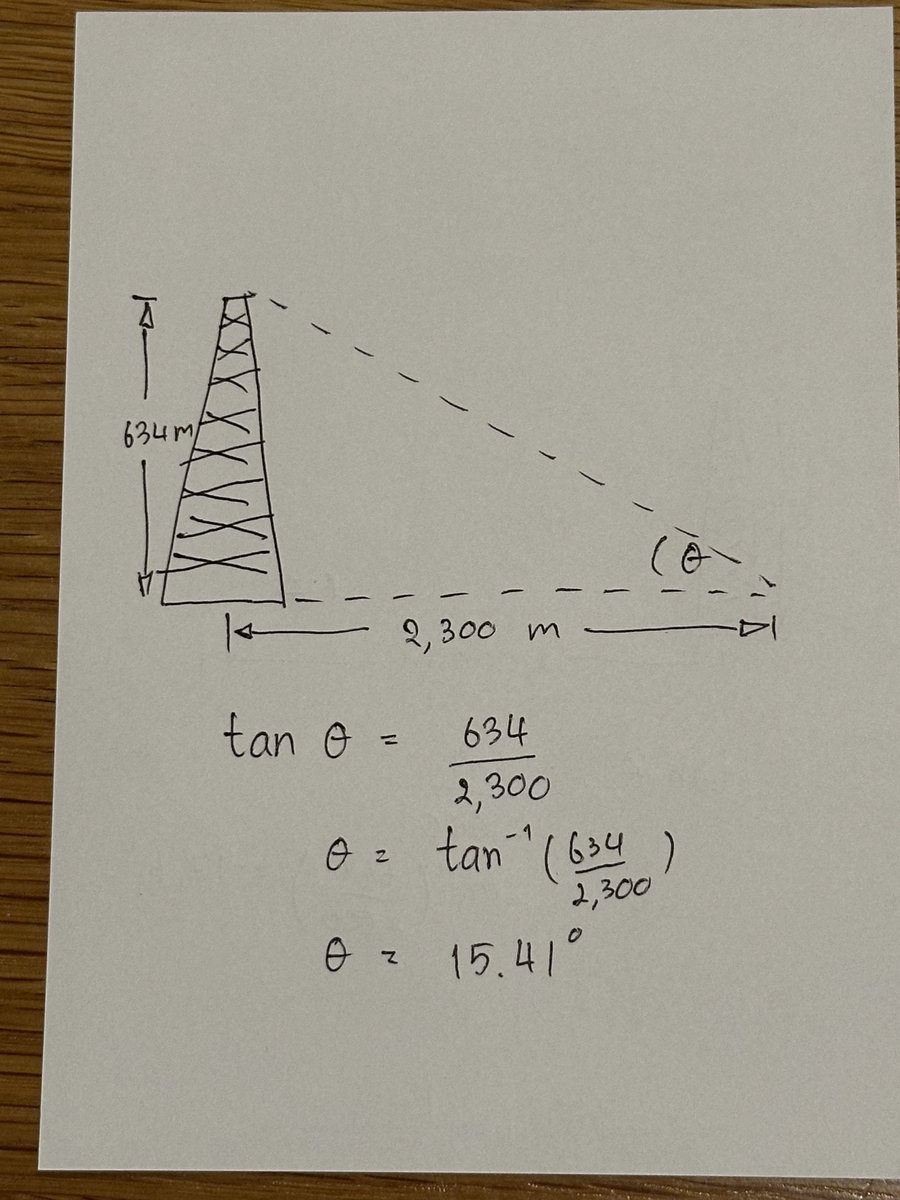 634 m
θ
2,300 m
tan θ = 634/2,300
θ = tan⁻¹(634/2,300)
θ = 15.41°